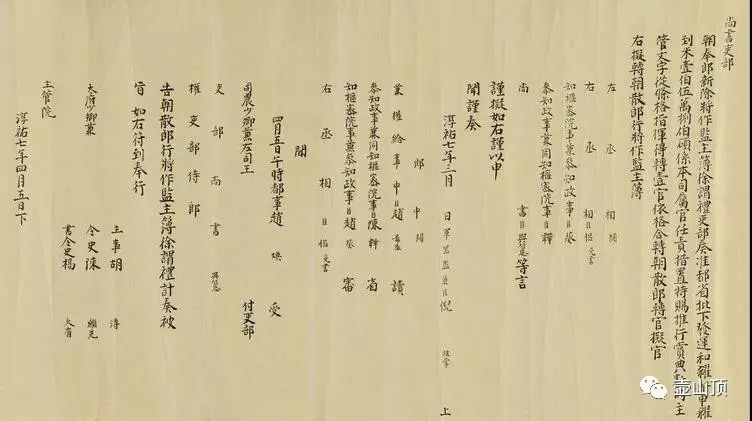 尚書吏部
朝奉郎新除將作監主簿徐謂禮吏部奏准都省批下發運和糴申糴
到米壹伯伍萬捌伯碩係本司屬官任責措置特賜推行賞典
管文字從條格指揮得轉壹官依格合轉朝散郎轉官擬官
右擬轉朝散郎行將作監主簿
左丞相闕
右丞相日侣免書
知樞密院事兼參知政事日葵
參知政事兼同知樞密院事日韡
尚書日與𥲅等言
謹擬如右謹以申
聞謹奏
淳祐七年三月 日軍器監兼臣倪祖常上
郎中闕
兼權給事中日趙希 讀
參知政事兼同知樞密院事日陳韡省
知樞密院事兼參知政事日趙葵審
右丞相日侣免書
聞
四月五日午時都事趙煥受
司農少卿兼左司王 付吏部
吏部尚書與
權吏部侍郎
告朝散郎行將作監主簿徐謂禮計奏被
旨如右符到奉行
主事胡濤
太府少卿兼 令史陳繼先
書令史楊大有
主管院
淳祐七年四月五日下
壺山頂